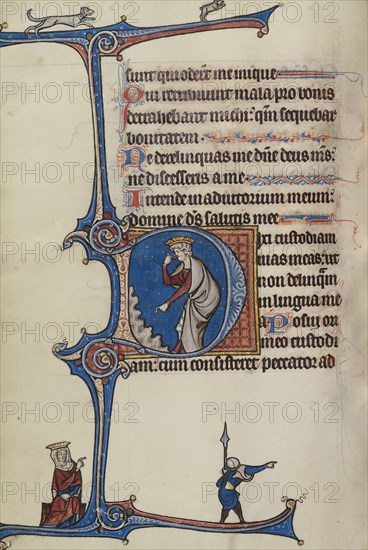 sunt qui oderunt me inique
Qui retribuunt mala pro bonis
detrahebant michi: qm̄ sequebar
bonitatem
Ne derelinquas me dn̄e deus m̄s:
ne discesseris a me
Intende in adiutorium meum:
domine d̄s salutis mee
Dixi custodiam
uias meas: ut
non delinquā
in lingua me
a Posui ori
meo custodi
am: cum consisteret peccator ad